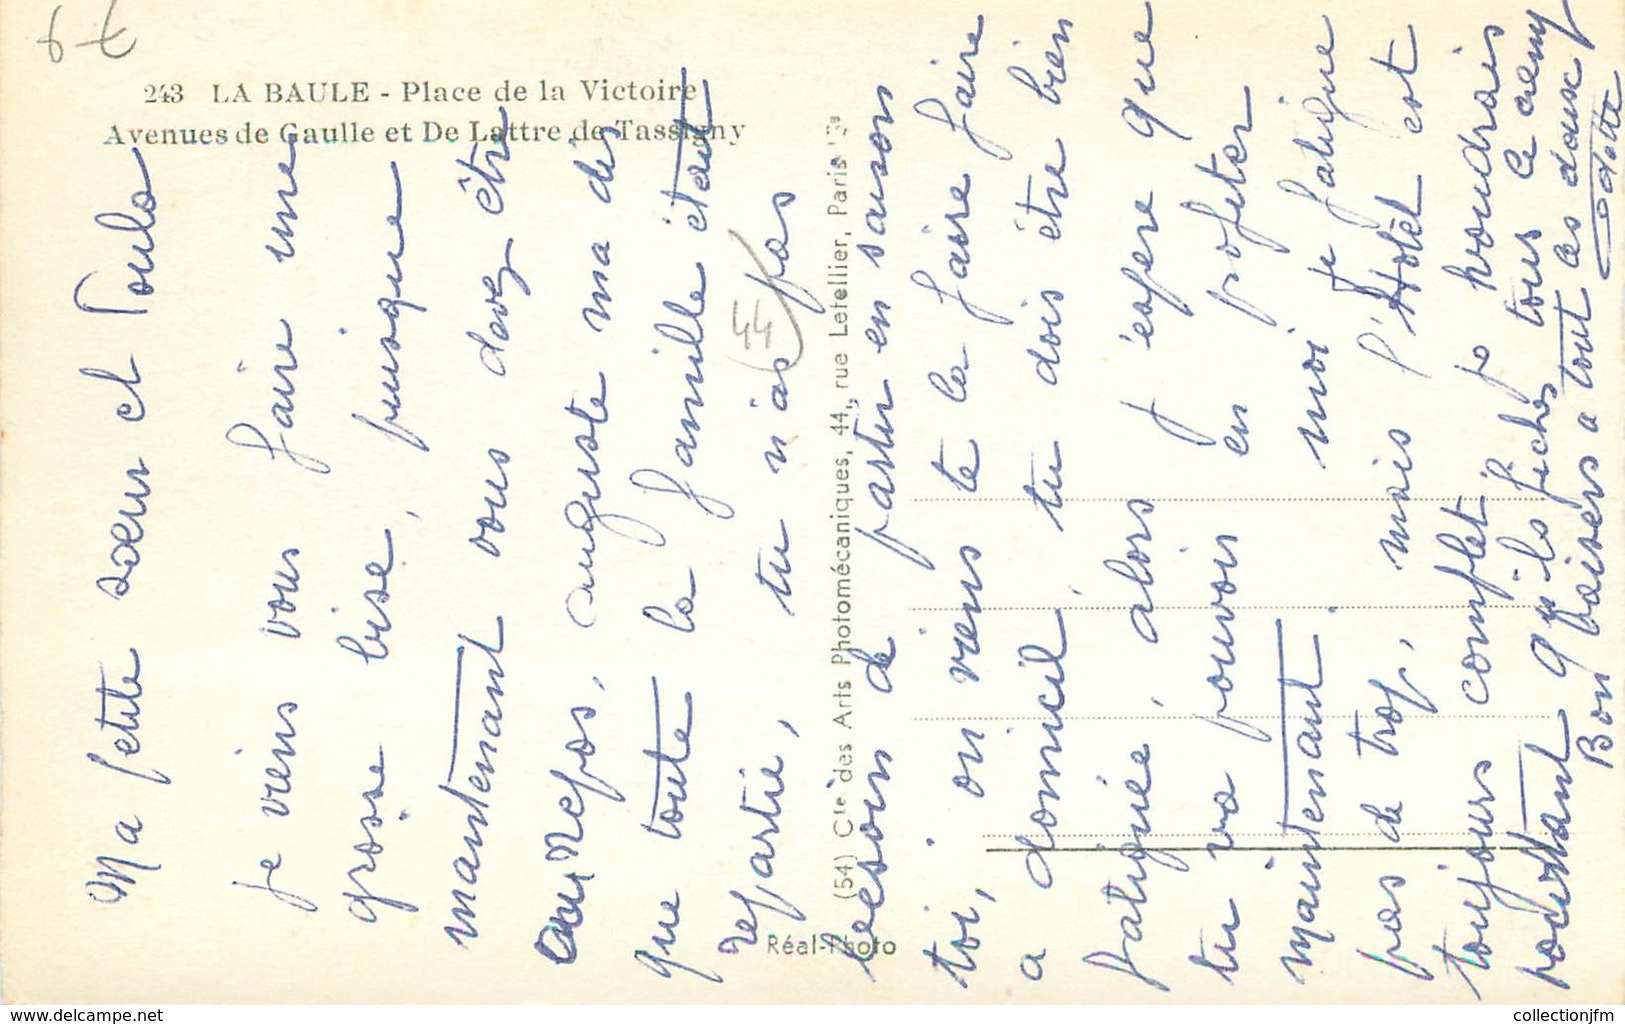 6 €
243 LA BAULE - Place de la Victoire
Avenues de Gaulle et De Lattre de Tassigny
44
(54) Cie des Arts Photomécaniques, 44, rue Letellier, Paris 15e
Réal-Photo
Ma petite sœur et Loulo
je viens vous faire une
grosse bise, puisque
maintenant vous devez être
au repos, auguste ma dit
que toute la famille était
repartie, tu n'as pas
besoin de partir en saison
toi, on viens te la faire faire
a domicil, tu dois être bien
fatiguée, alors j'espere que
tu va pouvoir en profiter
maintenant. moi je fatigue
pas de trop, mais l'Hotêl est
toujours complet, je voudrais
pourtant qu'ils fiches tous le camp
Bon baisers a tout les deux
Odette
www.delcampe.net
collectionjfm